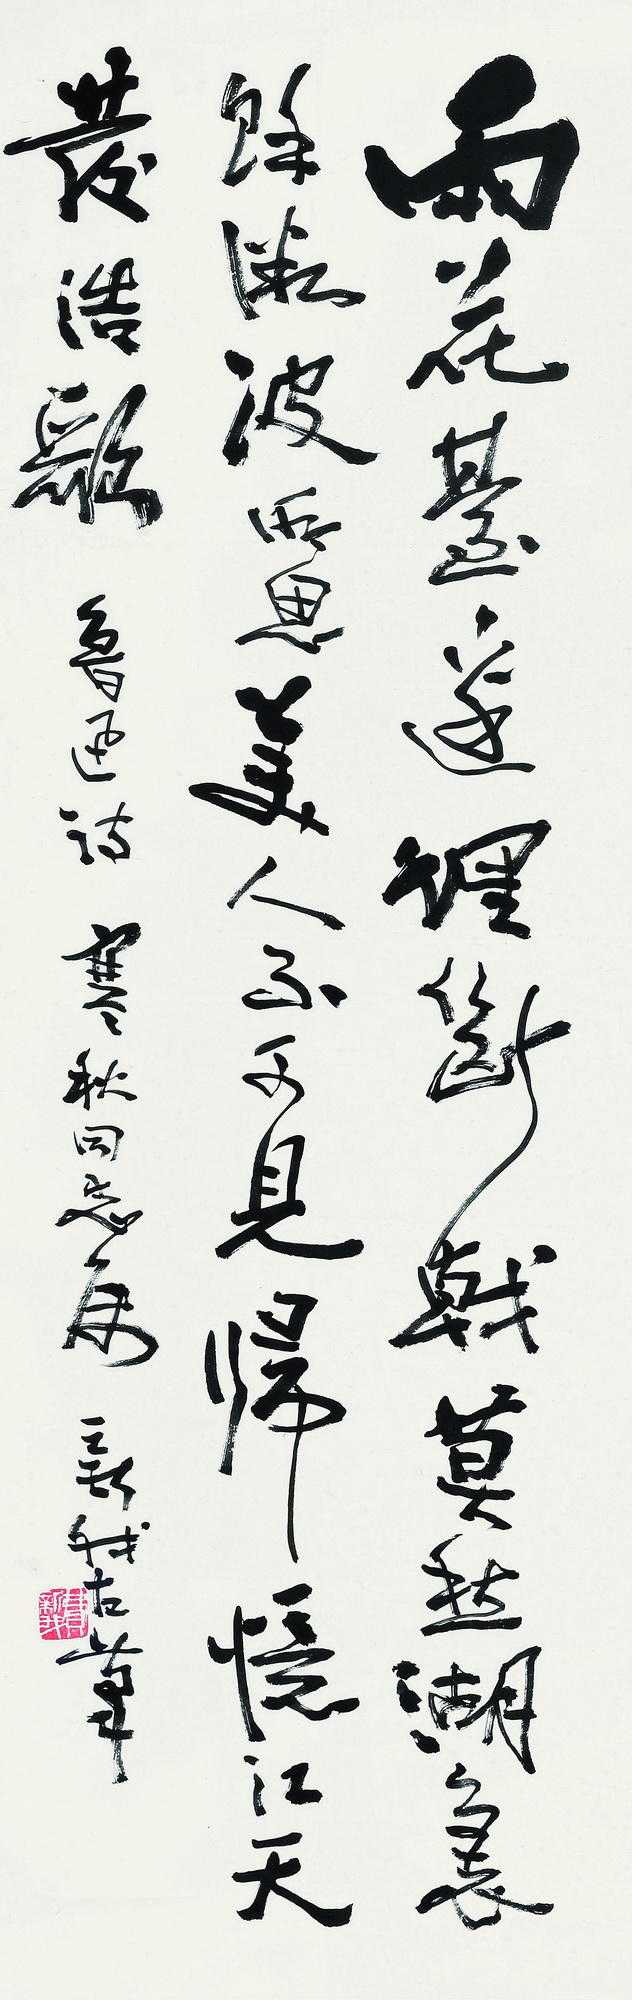 雨花臺邊埋斷戟莫愁湖裏
餘微波所思美人不可見歸憶江天
發浩歌 魯迅詩 寒秋同志屬 費新我左筆